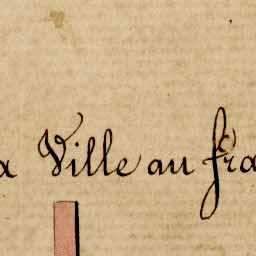 a Ville au fra